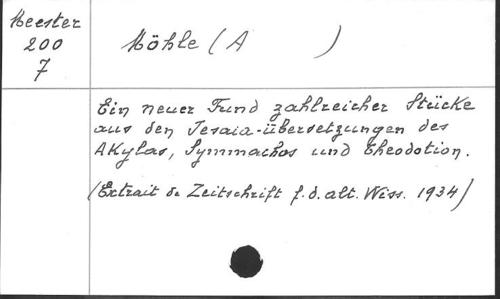 Meester
200
7
Möhle (A )
Ein neuer Fund zahlreicher Stücke
aus den Jesaia-übersetzungen des
Akylas, Symmachos und Theodotion.
(Extrait de Zeitschrift f. d. alt. Wiss. 1934)